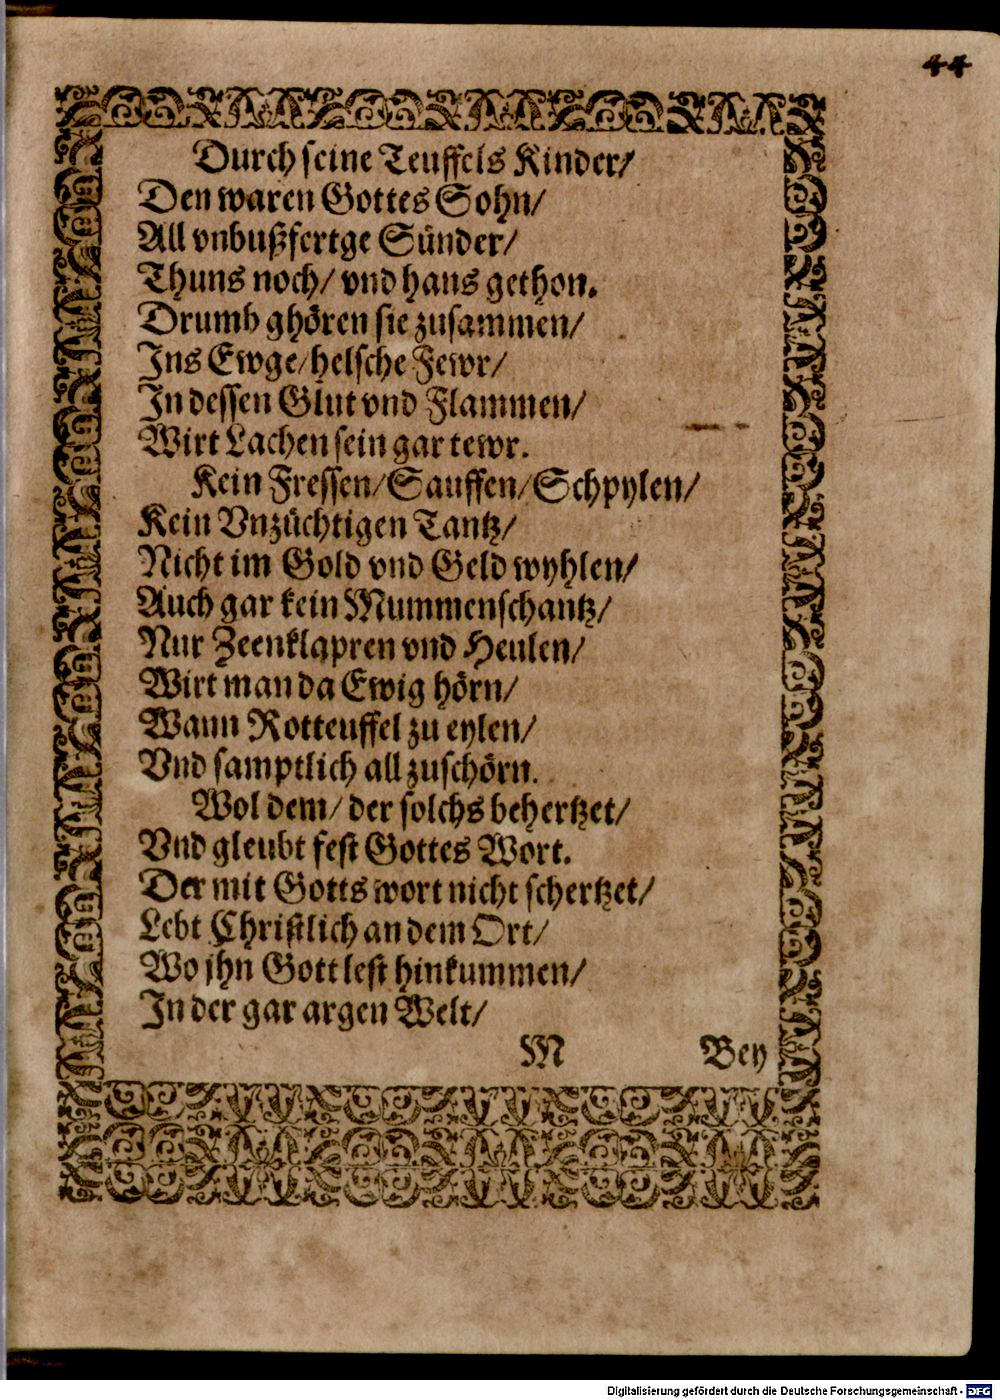 44
Durch seine Teuffels Kinder/
Den waren Gottes Sohn/
All vnbußfertge Sünder/
Thuns noch/ vnd hans gethon.
Drumb ghören sie zusammen/
Ins Ewge/ helsche Fewr/
In dessen Glut vnd Flammen/
Wirt Lachen sein gar tewr.
Kein Fressen/ Sauffen/ Schpylen/
Kein Vnzüchtigen Tantz/
Nicht im Gold vnd Geld wyhlen/
Auch gar kein Mummenschantz/
Nur Zeenklapren vnd Heulen/
Wirt man da Ewig hörn/
Wann Rotteuffel zu eylen/
Vnd samptlich all zuschörn.
Wol dem/ der solchs behertzet/
Vnd gleubt fest Gottes Wort.
Der mit Gotts wort nicht schertzet/
Lebt Christlich an dem Ort/
Wo jhn Gott lest hinkummen/
In der gar argen Welt/
M Bey
Digitalisierung gefördert durch die Deutsche Forschungsgemeinschaft - DFG